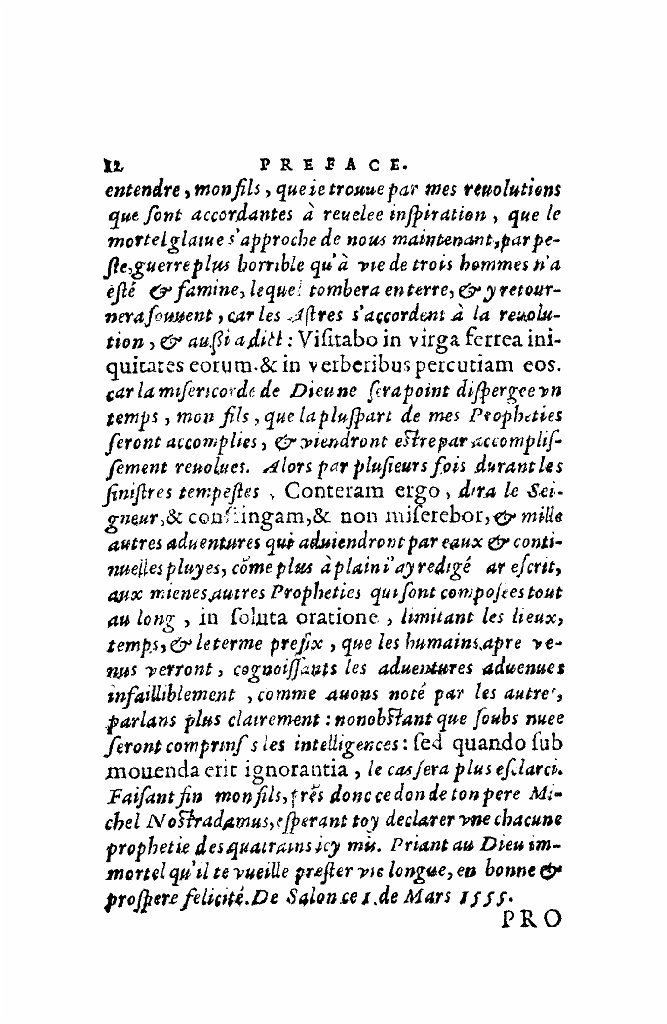 12 PREFACE.
entendre, mon fils, que ie trouue par mes reuolutions
que ſont accordantes à reuelee inſpiration, que le
mortel glaiue s'approche de nous maintenant, par pe-
ſte, guerre plus horrible qu'à vie de trois hommes n'a
eſté & famine, lequel tombera en terre, & y retour-
nera ſouuent, car les Aſtres s'accordent à la reuolu-
tion, & auſſi a dict : Viſitabo in virga ferrea ini-
quitates eorum. & in verberibus percutiam eos.
car la miſericorde de Dieu ne ſera point diſpergee vn
temps, mon fils, que la pluſpart de mes Propheties
ſeront accomplies, & viendront eſtre par accompliſ-
ſement reuolues. Alors par pluſieurs fois durant les
ſiniſtres tempeſtes, Conteram ergo, dira le Sei-
gneur, & conſtingam, & non miſerebor, & mille
autres aduentures qui aduiendront par eaux & conti-
nuelles pluyes, cõme plus à plain i'ay redigé ar eſcrit,
aux mienes autres Propheties qui ſont compoſees tout
au long, in ſoluta oratione, limitant les lieux,
temps, & le terme prefix, que les humains apre ve-
nus verront, cognoiſſants les aduentures aduenues
infailliblement, comme auons noté par les autre',
parlans plus clairement : nonobſtant que ſoubs nuee
ſeront comprinſ s les intelligences : ſed quando ſub
mouenda erit ignorantia, le cas ſera plus eſclarci.
Faiſant fin mon fils, prẽs donc ce don de ton pere Mi-
chel Noſtradamus, eſperant toy declarer vne chacune
prophetie des quatrains icy mis. Priant au Dieu im-
mortel qu'il te vueille preſter vie longue, en bonne &
proſpere felicité. De Salon ce 1. de Mars 1555.
PRO